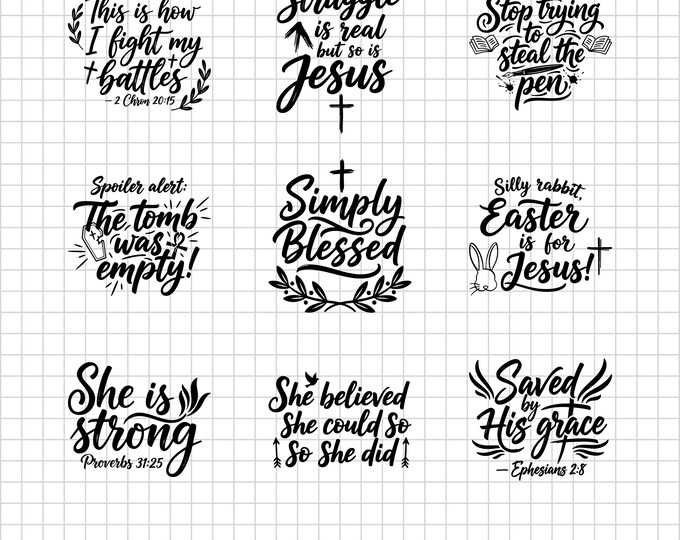 This is how
I fight my
battles
– 2 Chron 20:15
Struggle
is real
but so is
Jesus
Stop trying
to
steal the
pen
Spoiler alert:
The tomb
was
empty!
Simply
Blessed
Silly rabbit,
Easter
is for
Jesus!
She is
strong
Proverbs 31:25
She believed
She could So
So She did
Saved
by
His grace
– Ephesians 2:8